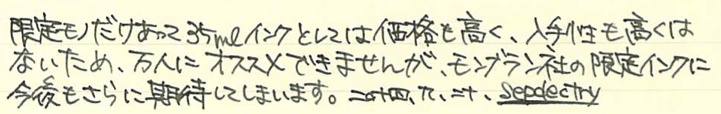 限定モノだけあって35mlインクとしては価格も高く、入手性も高くは
ないため、万人にオススメできませんが、モンブラン社の限定インクに
今後もさらに期待してしまいます。二十四、九、二十、